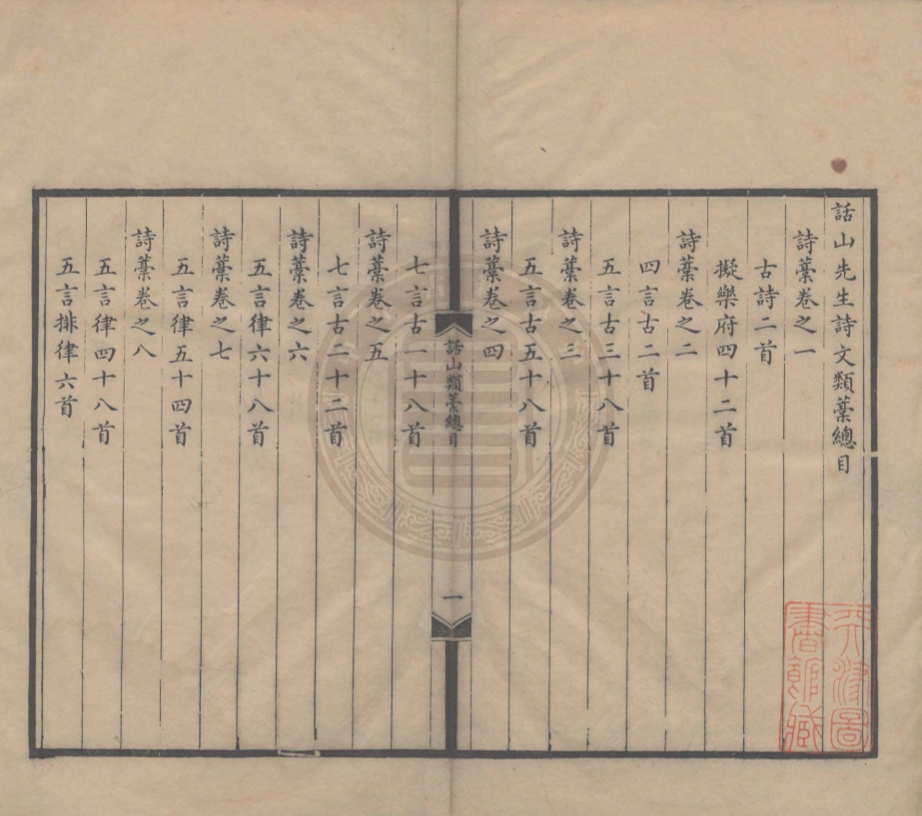 話山先生詩文類藳總目
詩藳卷之一
古詩二首
擬樂府四十二首
詩藳卷之二
四言古二首
五言古三十八首
詩藳卷之三
五言古五十八首
詩藳卷之四
話山類藳總目
一
七言古一十八首
詩藳卷之五
七言古二十二首
詩藳卷之六
五言律六十八首
詩藳卷之七
五言律五十四首
詩藳卷之八
五言律四十八首
五言排律六首